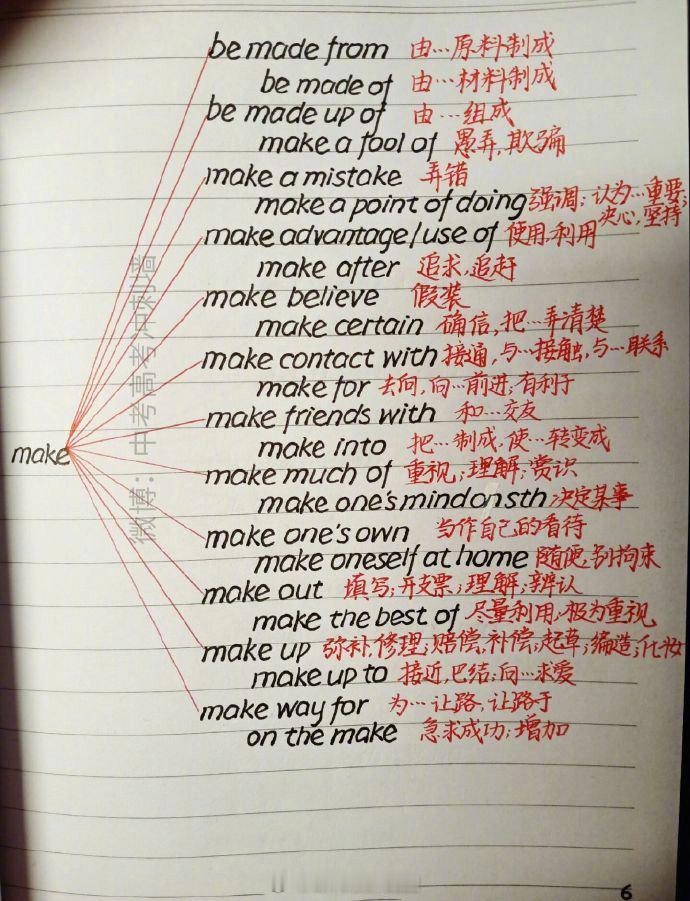 be made from 由…原料制成
be made of 由…材料制成
be made up of 由…组成
make a fool of 愚弄,欺骗
make a mistake 弄错
make a point of doing 强调;认为…重要;
决心,坚持
make advantage/use of 使用,利用
make after 追求,追赶
make believe 假装
make certain 确信,把…弄清楚
make contact with 接通,与…接触,与…联系
make for 去向,向…前进;有利于
make friends with 和…交友
make into 把…制成,使…转变成
make
make much of 重视;理解;赏识
make one's mind on sth 决定某事
make one's own 当作自己的看待
make oneself at home 随便,别拘束
make out 填写;开支票;理解;辨认
make the best of 尽量利用;极为重视
make up 弥补,修理;赔偿,补偿;起草;编造;化妆
make up to 接近,巴结;向…求爱
make way for 为…让路,让路于
on the make 急求成功;增加
微博:中考高考冲刺墙
6